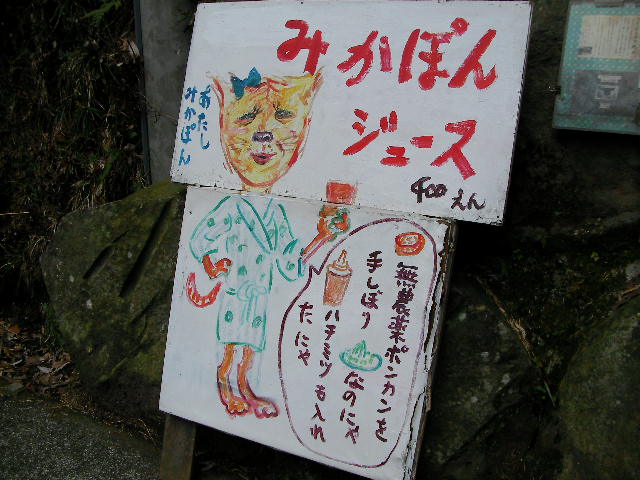 みかぽん
ジュース
400えん
あたし
みかぽん
無農薬ポンカンを
手しぼりなのにゃ
ハチミツも入れ
たにゃ